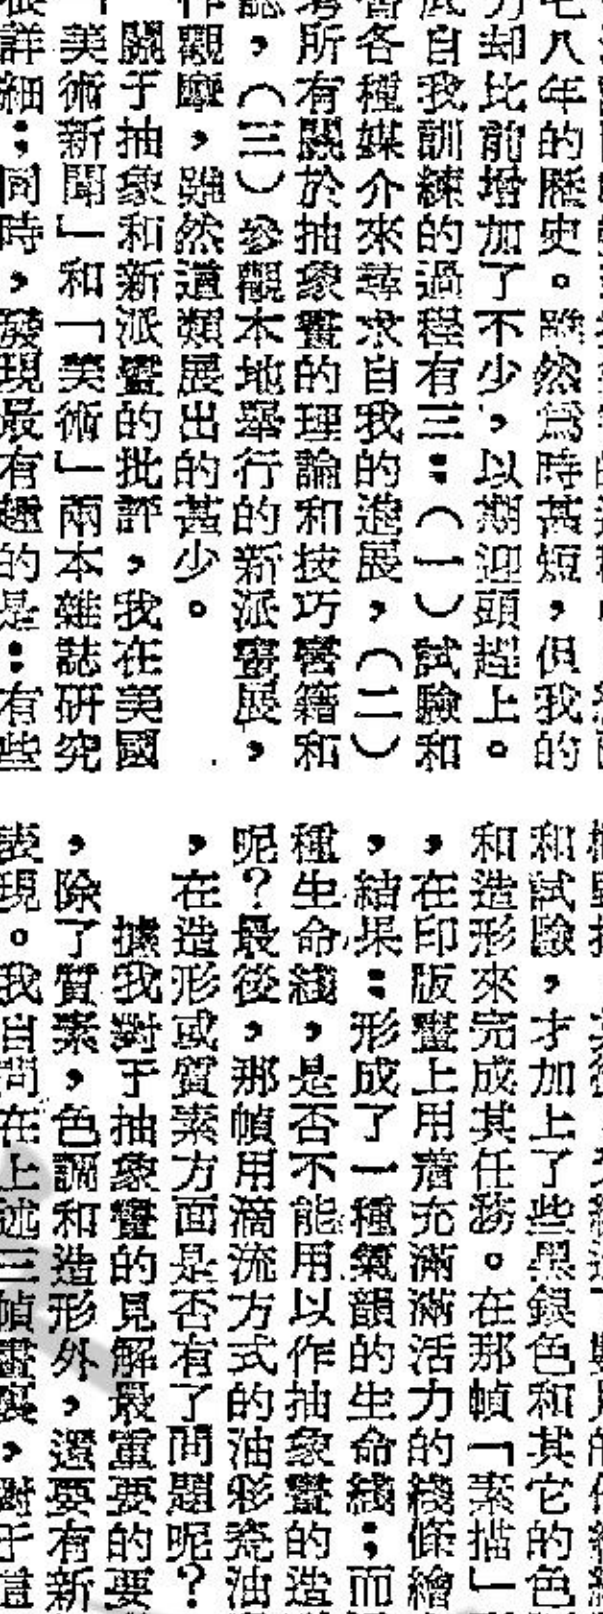 八年的歷史。雖然爲時甚短,但我的
却比前增加了不少,以期迎頭趕上。
自我訓練的過程有三:(一)試驗和
各種媒介來尋求自我的進展,(二)
所有關於抽象畫的理論和技巧書籍和
誌,(三)參觀本地舉行的新派畫展,
作觀摩,雖然這類展出的甚少。
關于抽象和新派畫的批評,我在美國
「美術新聞」和「美術」兩本雜誌研究
詳細;同時,發現最有趣的是:有些
和試驗,才加上了些黑銀色和其它的色
和造形來完成其任務。在那幀「素描」
,在印版畫上用着充滿滿活力的綫條繪
,結果:形成了一種氣韻的生命綫;而
種生命綫,是否不能用以作抽象畫的造
呢?最後,那幀用滴流方式的油彩瓷油
,在造形或質素方面是否有了問題呢?
據我對于抽象畫的見解最重要的要
,除了質素,色調和造形外,還要有新
表現。我自問在上述三幀畫裏,對于這